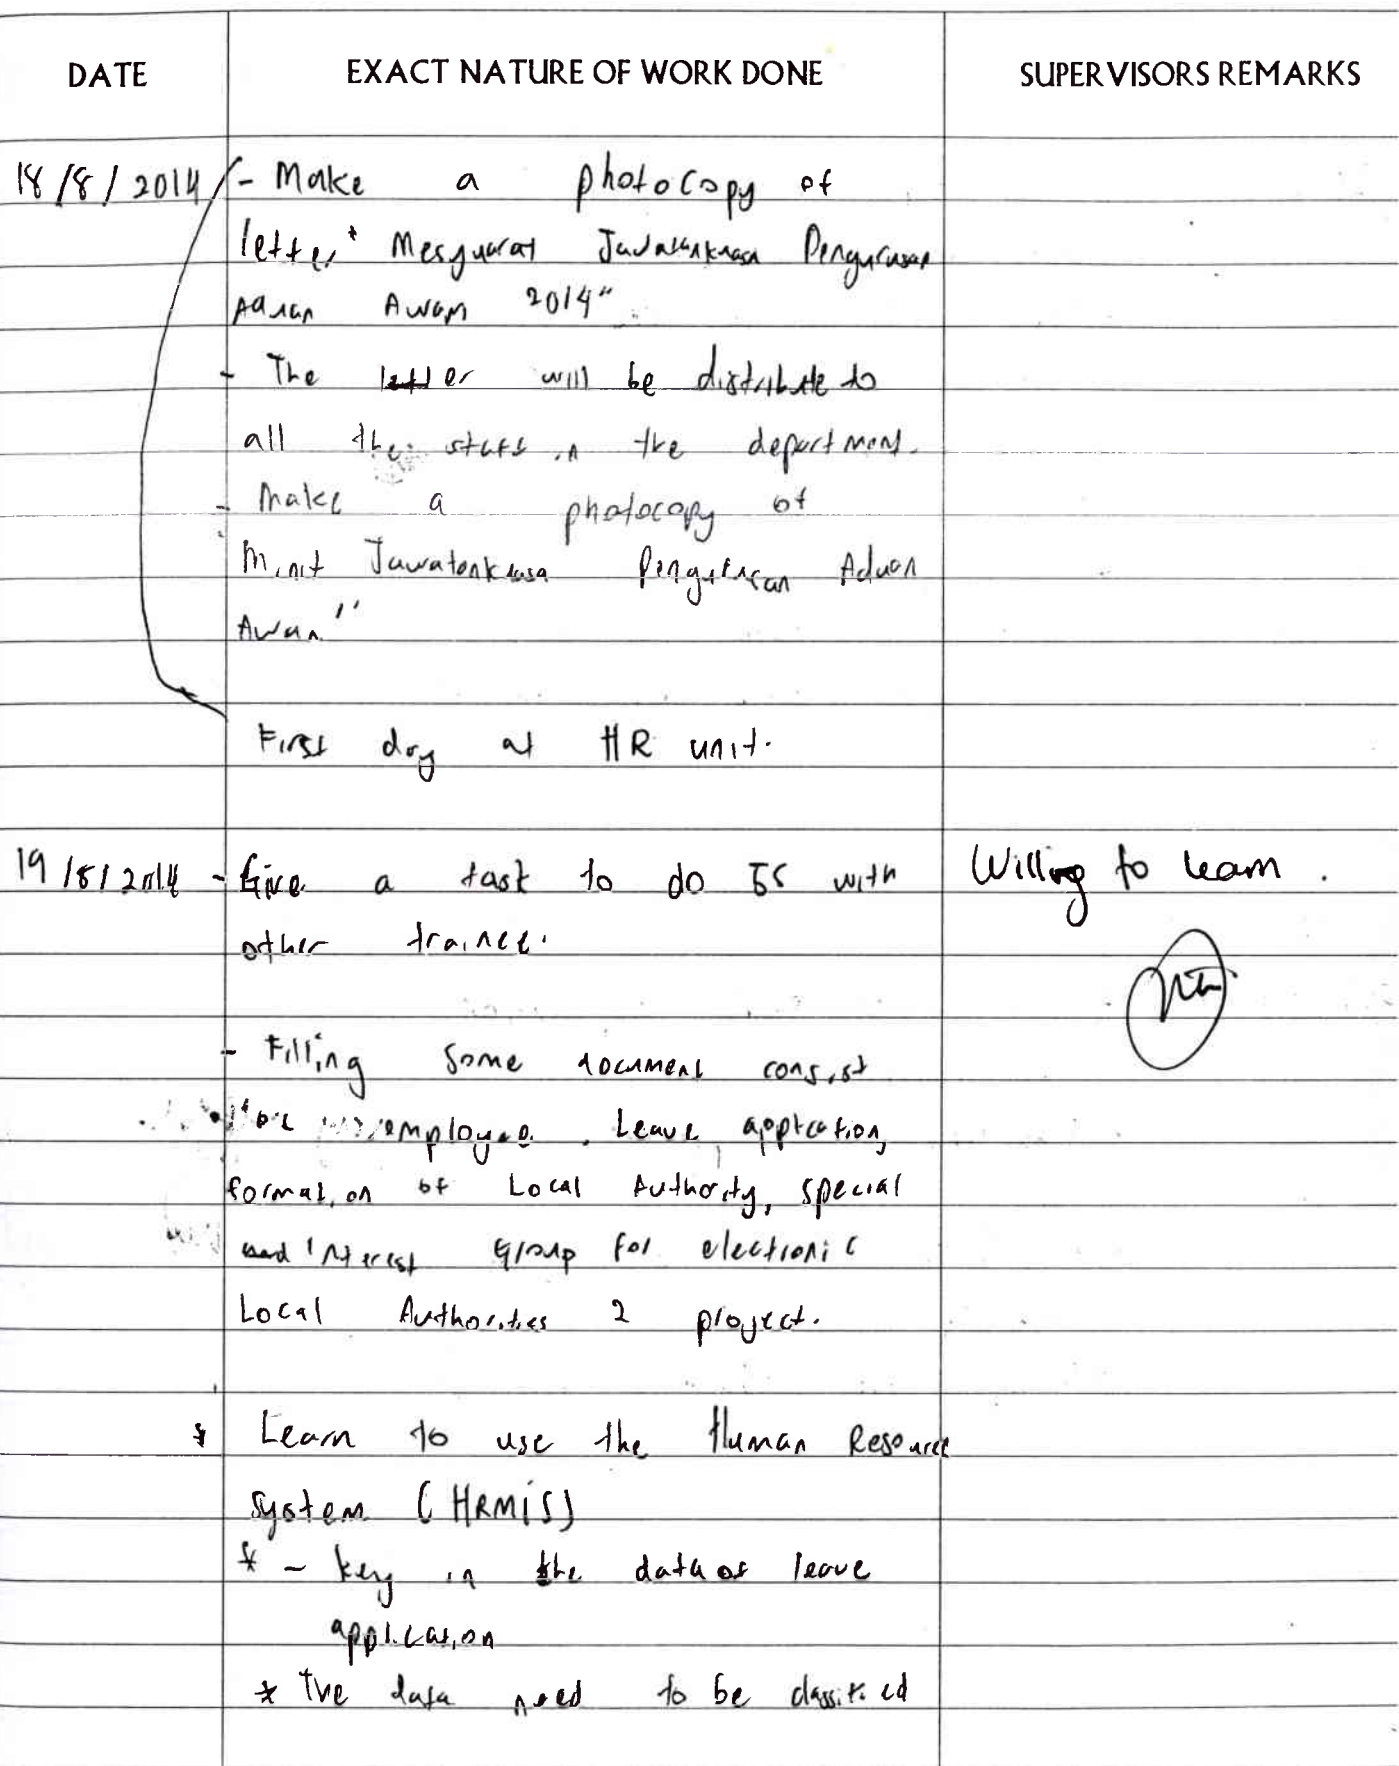 DATE EXACT NATURE OF WORK DONE SUPERVISORS REMARKS
18/8/2014 - Make a photocopy of
letter " Mesyuarat Jawatankuasa Pengurusan
Aduan Awam 2014"
- The letter will be distribute to
all the staff in the department.
- Make a photocopy of
Minit Jawatankuasa Pengurusan Aduan
Awam"
First day at HR unit.
19/8/2014 - Give a task to do 5S with Willing to learn.
other trainee.
- Filling some document consist
employee. Leave application,
formation of Local Authority, special
interest Group for electronic
Local Authorities 2 proyect.
* Learn to use the Human Resource
system (HRMIS)
* - key in the data of leave
application
* The data need to be classified